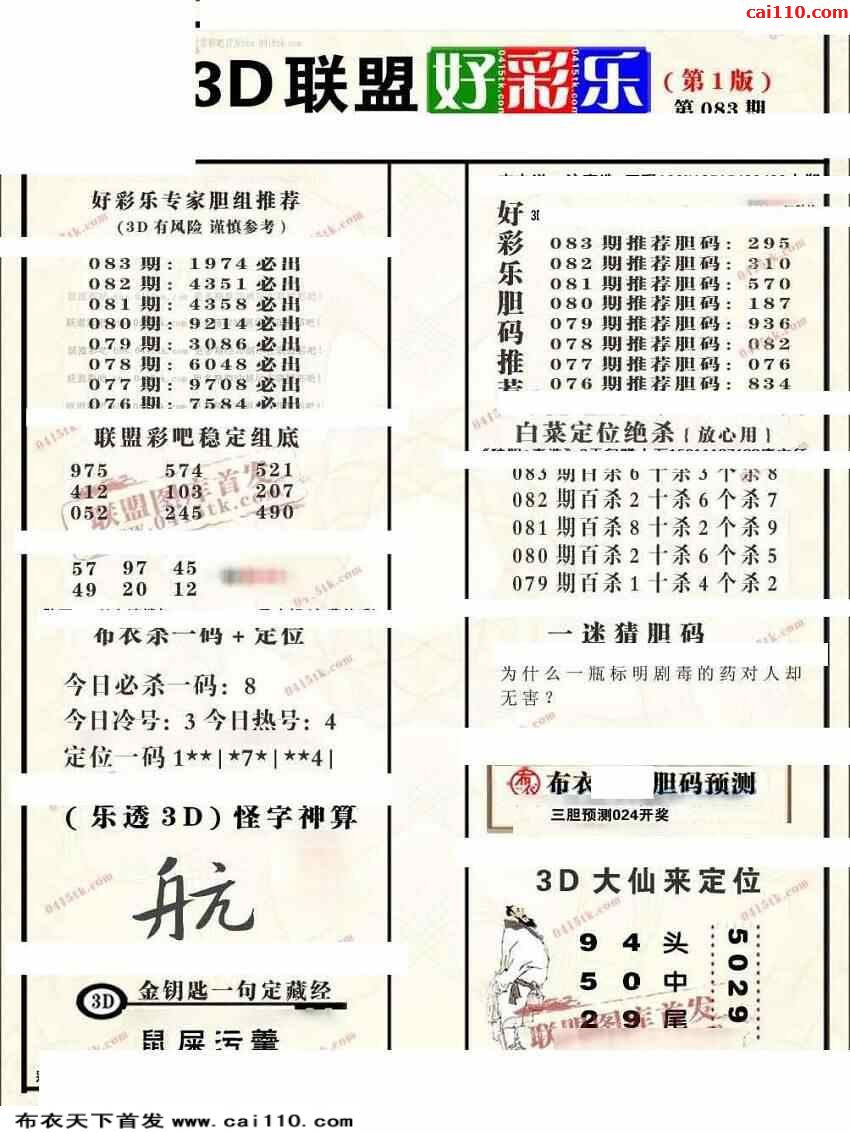 cai110.com
3D联盟好彩乐(第1版)
第083期
好彩乐专家胆组推荐
(3D有风险 谨慎参考)
083期: 1974必出
082期: 4351必出
081期: 4358必出
080期: 9214必出
079期: 3086必出
078期: 6048必出
077期: 9708必出
076期: 7584必出
联盟彩吧稳定组底
975 574 521
412 103 207
052 245 490
57 97 45
49 20 12
布衣杀一码+定位
今日必杀一码: 8
今日冷号: 3 今日热号: 4
定位一码 1**|*7*|**4|
(乐透3D)怪字神算
航
3D 金钥匙一句定藏经
鼠屎污羹
好彩乐胆码推荐
083期推荐胆码: 295
082期推荐胆码: 310
081期推荐胆码: 570
080期推荐胆码: 187
079期推荐胆码: 936
078期推荐胆码: 082
077期推荐胆码: 076
076期推荐胆码: 834
白菜定位绝杀{放心用}
083期百杀6十杀3个杀8
082期百杀2十杀6个杀7
081期百杀8十杀2个杀9
080期百杀2十杀6个杀5
079期百杀1十杀4个杀2
一迷猜胆码
为什么一瓶标明剧毒的药对人却
无害?
布衣 胆码预测
三胆预测024开奖
3D大仙来定位
9 4 头
5 0 中
2 9 尾
5029
联盟图库首发
www.0415tk.com
0415tk.com
布衣天下首发 www.cai110.com